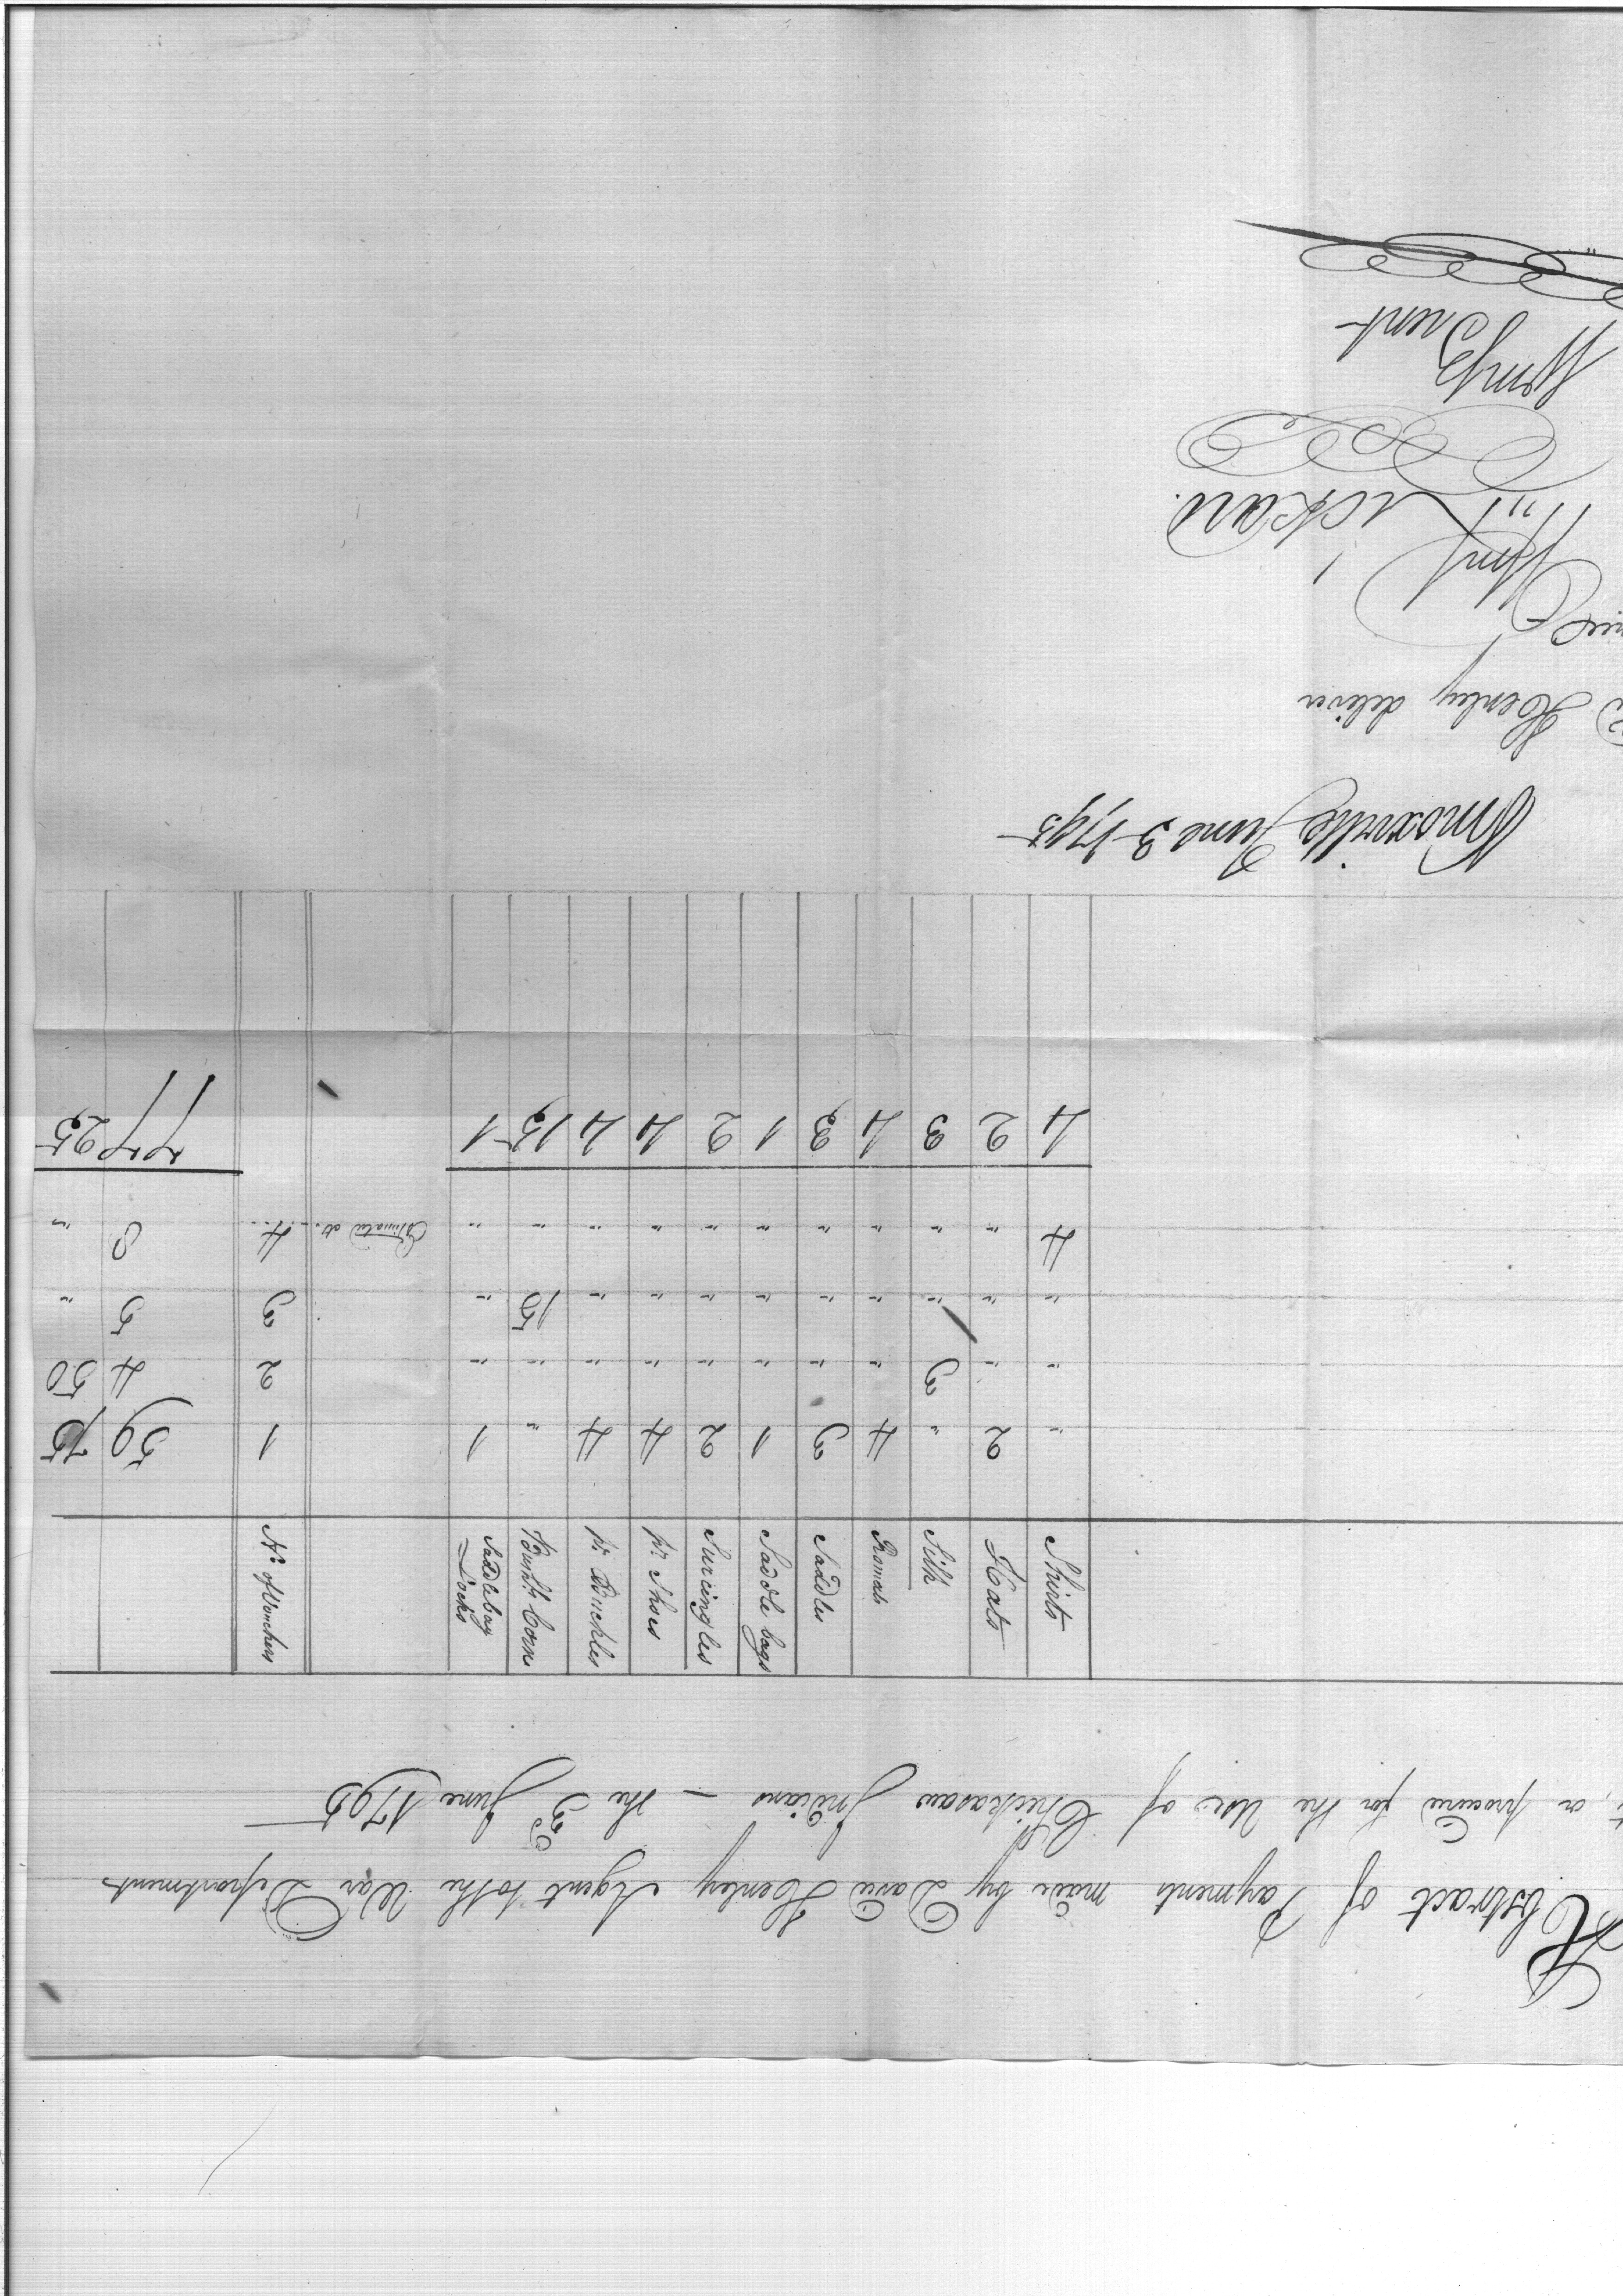 Abstract of Payments made by David Henley Agent to the War Department
or procured for the Use of Chickasaw Indians — the 3d June 1795
Shirts Hats Silk Romals Saddles Saddle bags Surcingles pr Shoes pr Buckles Bush.ls Corn Saddlebag Locks No. of Vouchers
" 2 " 4 3 1 2 4 4 " 1 1 59 75
" " 3 " " " " " " " " 2 4 50
" " " " " " " " " 15 " 3 5 "
4 " " " " " " " " " " Estimated at 4 8 "
4 2 3 4 3 1 2 4 4 15 1 77 25
Knoxville June 3 1795
Henley deliver
Wm Lickard
Wm Trent